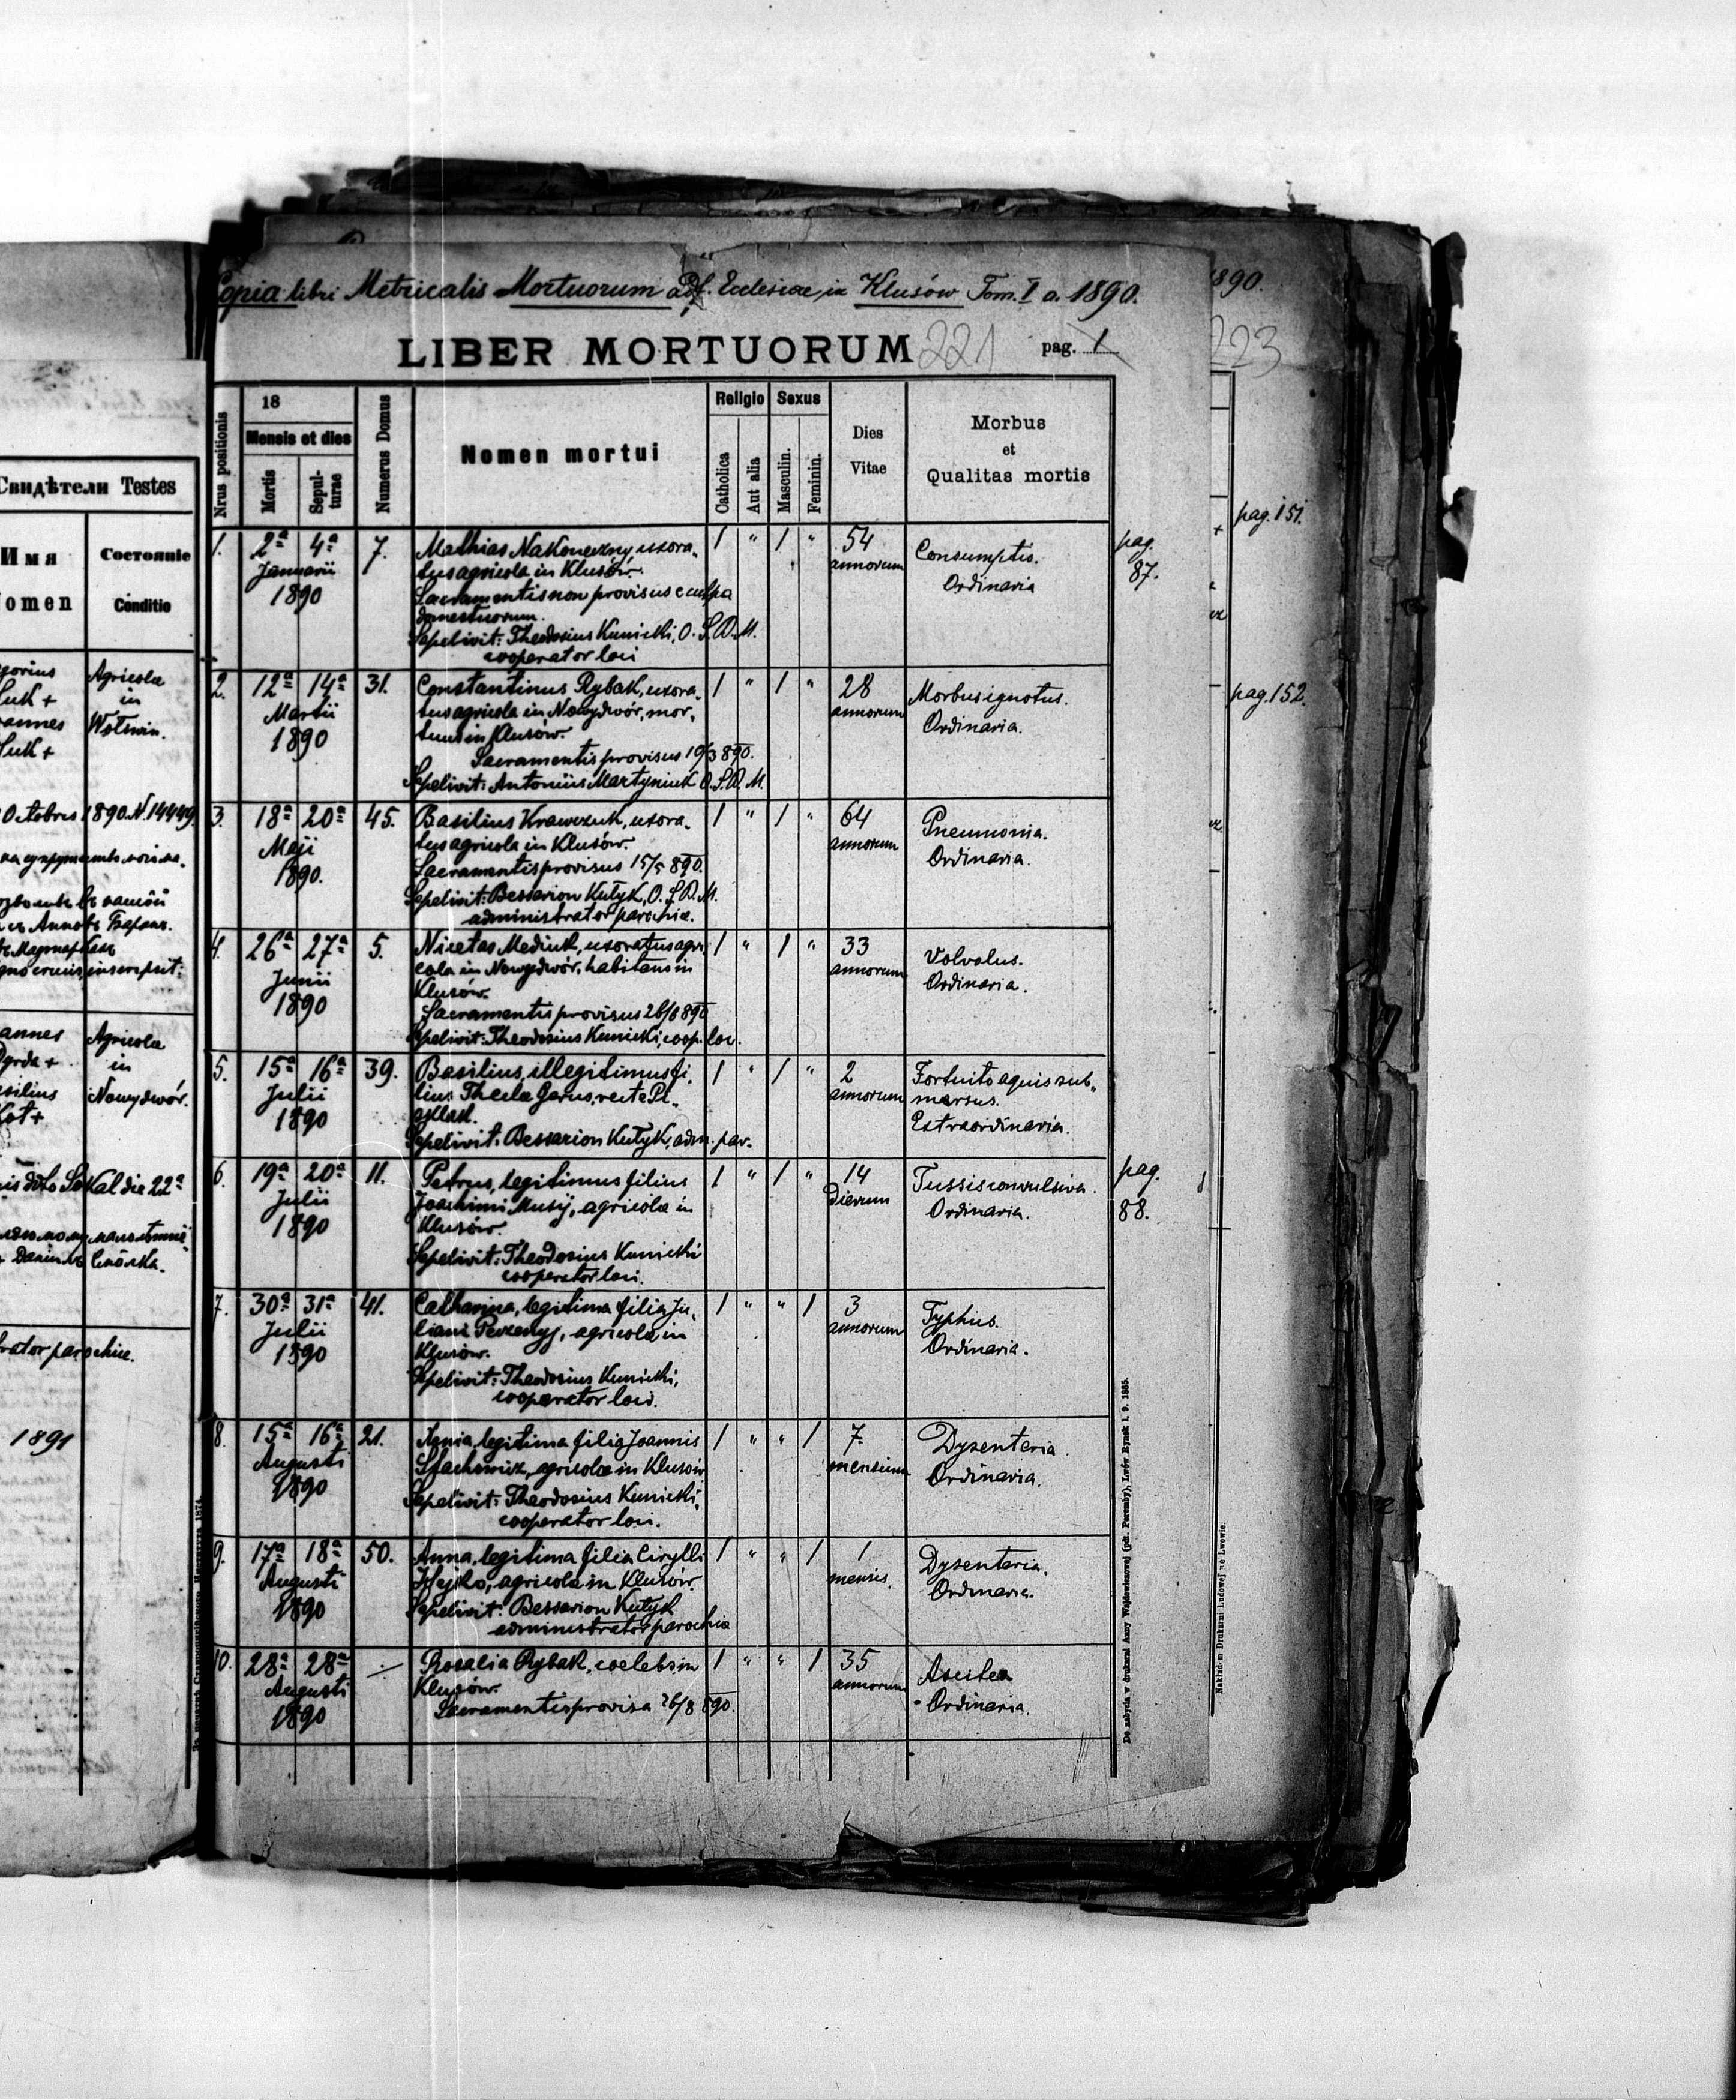 Свидѣтели Testes
Имя
Состояніе
omen
Conditio
gorius
Agricolæ
in
annes
Wolswin.
Octobris 1890. N. 14449.
annes
Agricolæ
in
asilius
Nowydwór.
Kot +
Sokal die 22ª
1891
Copia libri Metricalis Mortuorum Ecclesiæ in Klusów Tom. I a. 1890.
LIBER MORTUORUM
221
pag. 1
Nrus positionis
18
Mensis et dies
Mortis
Sepul-
turae
Numerus Domus
Nomen mortui
Religio
Catholica
Aut alia
Sexus
Masculin.
Feminin.
Dies
Vitae
Morbus
et
Qualitas mortis
1. 2ª 4ª 7. Mathias Nakoneczny, uxora- 1 " 1 " 54 Consumptio. pag.
Januarii tus agricola in Klusów. annorum Ordinaria 87.
1890 Sacramentis non provisus e culpa
domesticorum.
Sepelivit: Theodosius Kunicki, O. S. B. M.
cooperator loci
2. 12ª 14ª 31. Constantinus Rybak, uxora- 1 " 1 " 28 Morbus ignotus.
Martii tus agricola in Nowydwór, mor- annorum Ordinaria.
1890 tuus in Klusow.
Sacramentis provisus 10/3 890.
Sepelivit: Antonius Martyniuk O. S. B. M.
3. 18ª 20ª 45. Basilius Krawczuk, uxora- 1 " 1 " 64 Pneumonia.
Maji tus agricola in Klusów. annorum Ordinaria.
1890. Sacramentis provisus 15/5 890.
Sepelivit: Bessarion Kutyk, O. S. B. M.
administrator parochiæ.
4. 26ª 27ª 5. Nicetas Mediuk, uxoratus agri- 1 " 1 " 33 Volvolus.
Junii cola in Nowydwór, habitans in annorum Ordinaria.
1890 Klusów.
Sacramentis provisus 26/6 890
Sepelivit: Theodosius Kunicki, coop. loci.
5. 15ª 16ª 39. Basilius, illegitimus fi- 1 " 1 " 2 Fortuito aquis sub-
Julii lius Theclæ Gerus, recte annorum mersus.
1890 Extraordinaria.
Sepelivit: Bessarion Kutyk, adm. par.
6. 19ª 20ª 11. Petrus, legitimus filius 1 " 1 " 14 Tussis convulsiva. pag.
Julii Joachimi Musij, agricolæ in dierum Ordinaria. 88.
1890 Klusów.
Sepelivit: Theodosius Kunicki
cooperator loci.
7. 30ª 31ª 41. Catharina, legitima filia Ju- 1 " " 1 3 Typhus.
Julii liani agricolæ in annorum Ordinaria.
1890 Klusów.
Sepelivit: Theodosius Kunicki,
cooperator loci.
8. 15ª 16ª 21. legitima filia Joannis 1 " " 1 7 Dysenteria.
Augusti agricolæ in Klusów mensium Ordinaria.
1890 Sepelivit: Theodosius Kunicki,
cooperator loci.
9. 17ª 18ª 50. Anna, legitima filia Cirylli 1 " " 1 1 Dysenteria.
Augusti Hejko, agricolæ in Klusów. mensis. Ordinaria.
1890 Sepelivit: Bessarion Kutyk
administrator parochiæ
10. 28ª 28ª — Rosalia Rybak, coelebs in 1 " " 1 35 Ascites
Augusti Klusów. annorum Ordinaria.
1890 Sacramentis provisa 26/8 890.
Do nabycia w drukarni Anny Wajdowiczowej (pdt. Poremby), Lwów Rynek l. 9. 1885.
1890.
223
pag. 151.
pag. 152.
Nakładem Drukarni Ludowej we Lwowie.